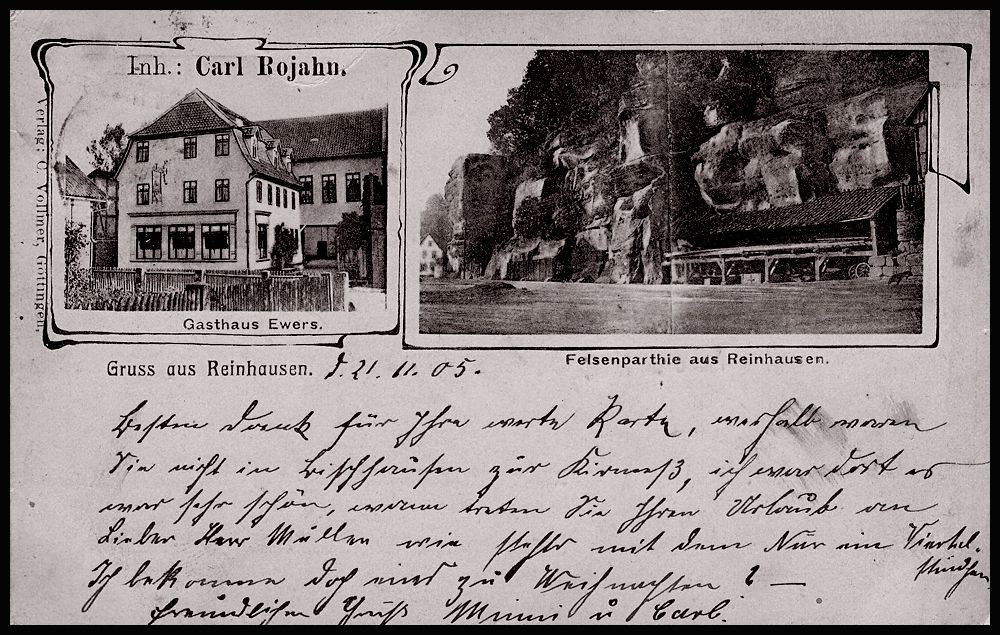 Inh.: Carl Rojahn.
Verlag: C. Vollmer, Göttingen.
Gasthaus Ewers.
Felsenparthie aus Reinhausen.
Gruss aus Reinhausen. d. 21. 11. 05.
Besten Dank für Ihre werte Karte, weshalb waren
Sie nicht in Bischhausen zur Kirmeß, ich war dort es
war sehr schön, wann treten Sie Ihren Urlaub an
Lieber Herr Müller wie stehts mit dem Nur ein Viertel-
stündchen
Ich bekomme doch eins zu Weihnachten? —
freundlichen Gruß Minni u Carl.